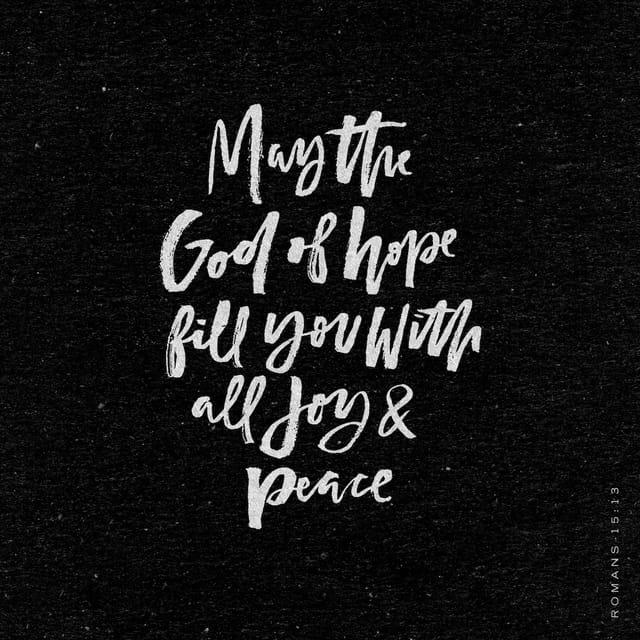 May the
God of hope
fill you With
all Joy &
peace
ROMANS 15:13